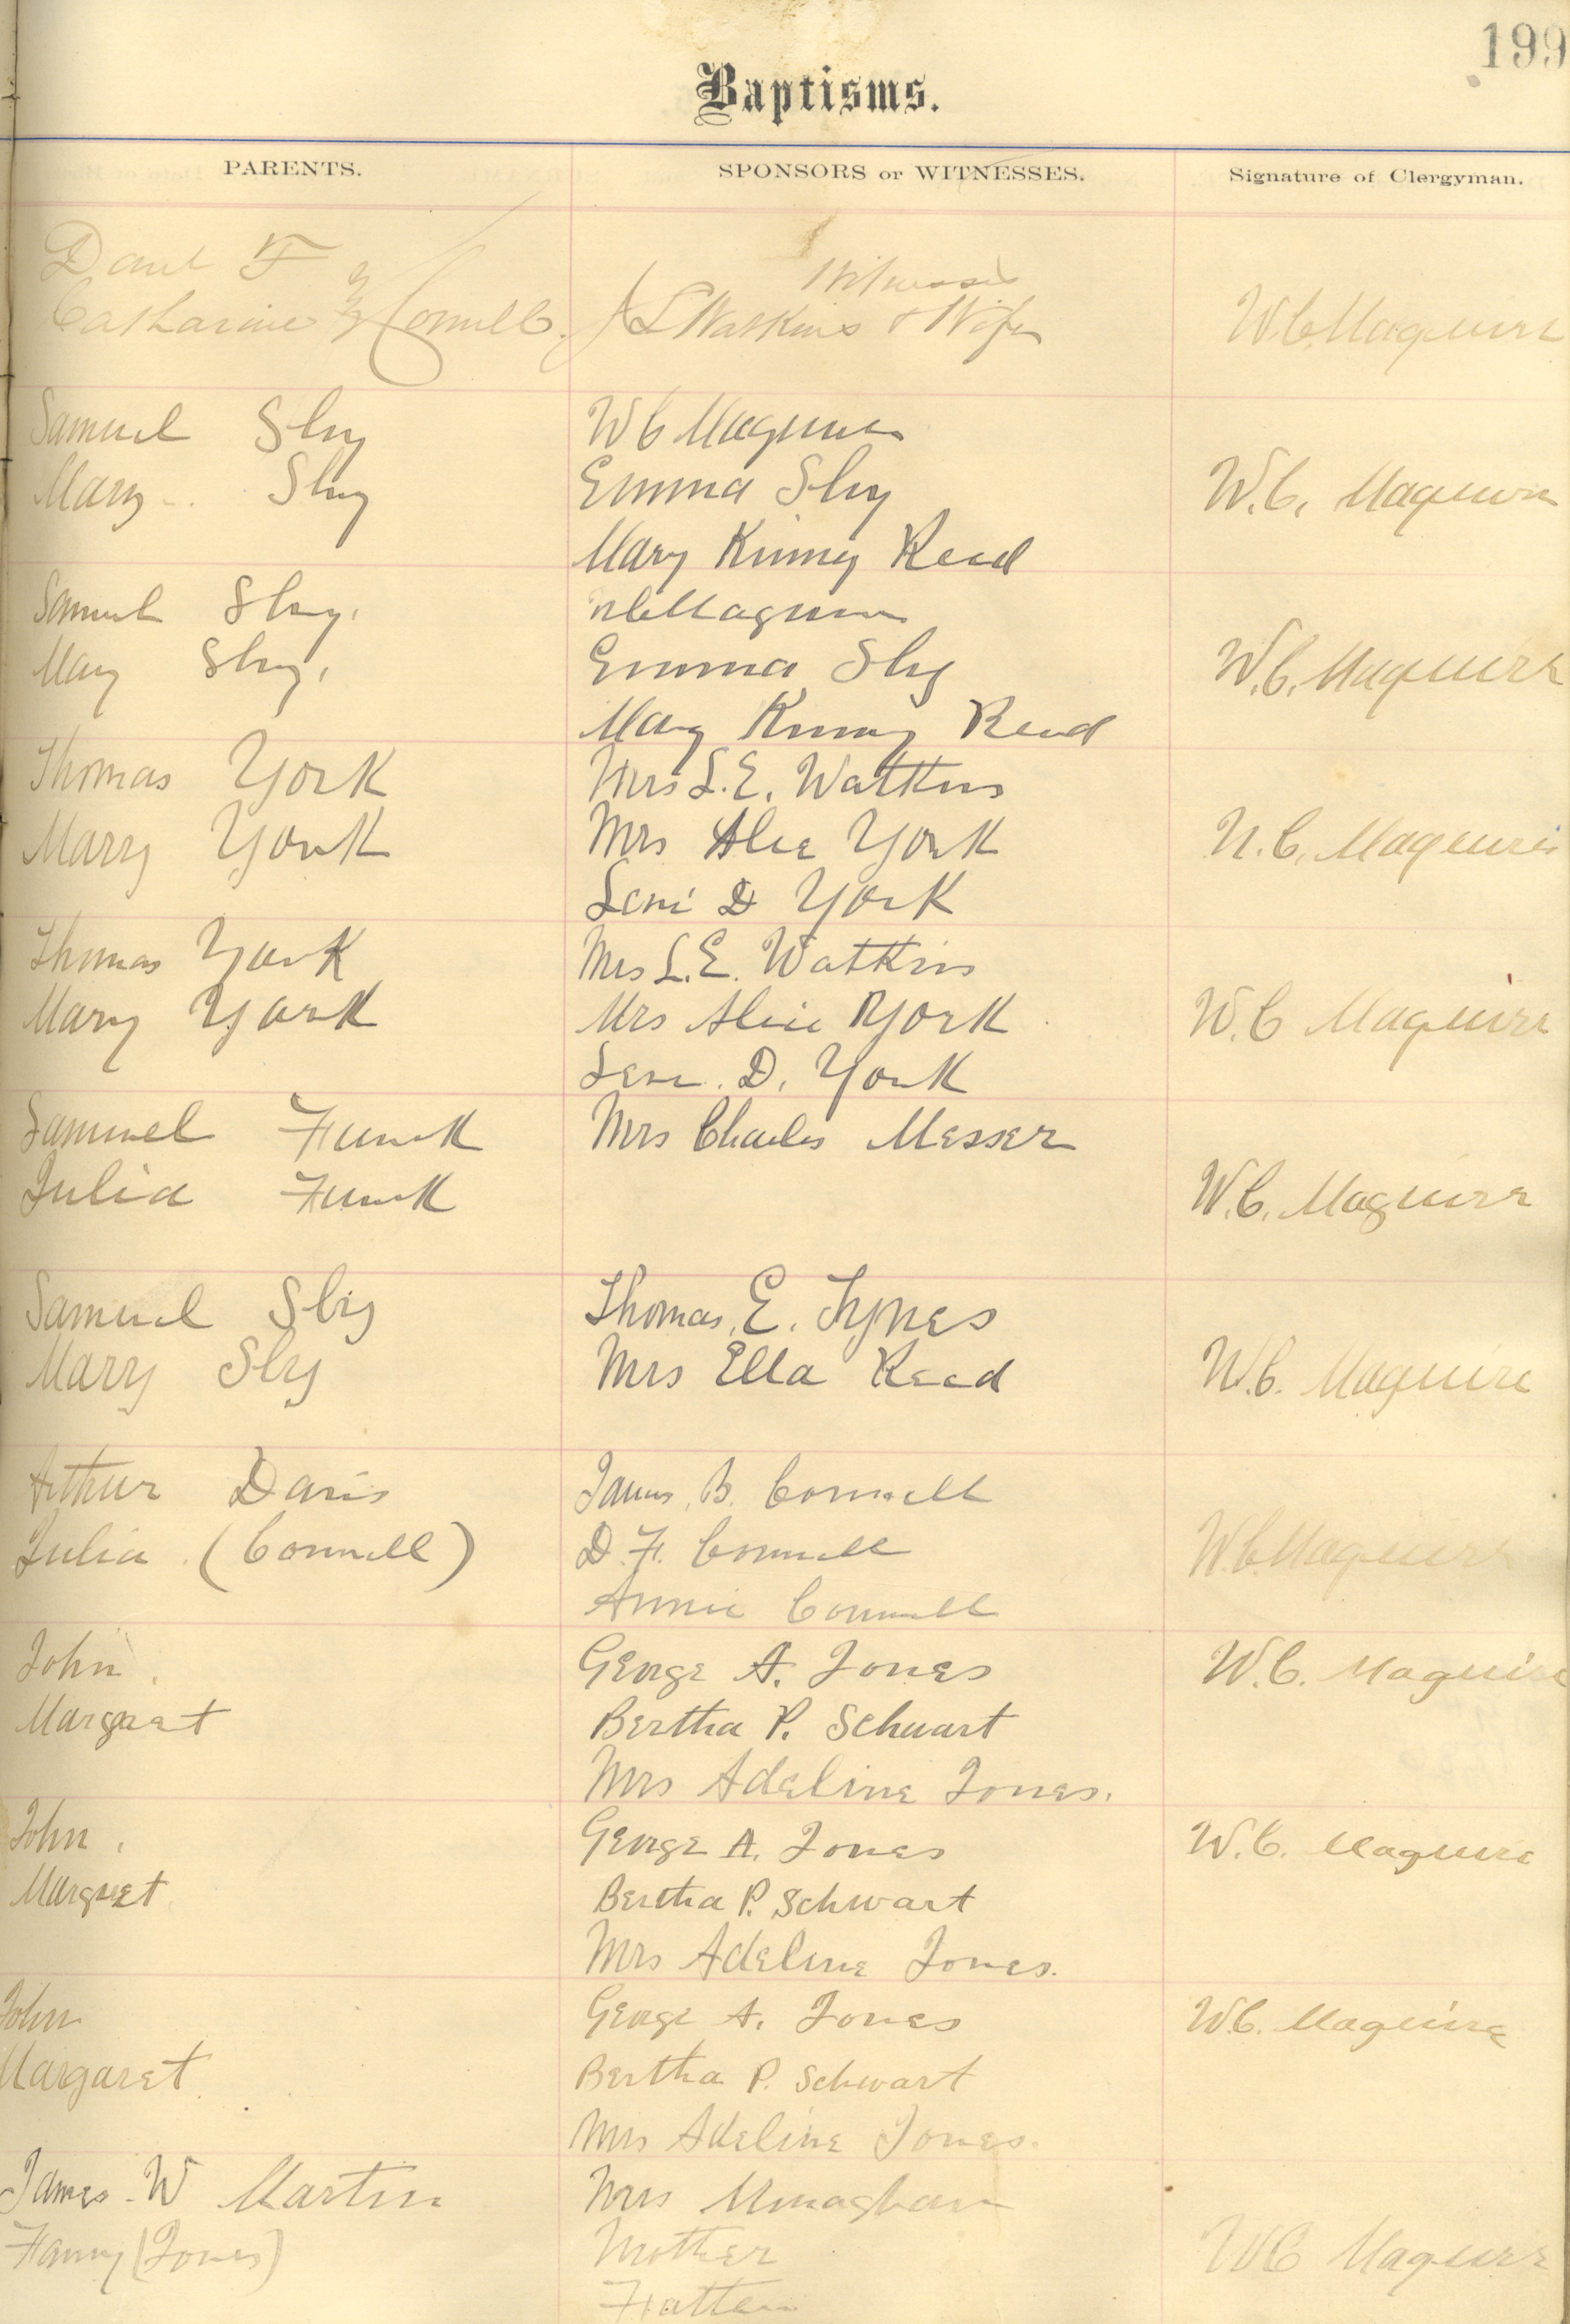 199
Baptisms.
PARENTS.
SPONSORS or WITNESSES.
Signature of Clergyman.
Danl F &
Catharine Connell.
Witnesses
J L Watkins & Wife
W.C. Maguire
Samuel Sly
Mary Sly
W C Maguire
Emma Sly
Mary Kinney Read
W.C. Maguire
Samuel Sly.
Mary Sly.
W C Maguire
Emma Sly
Mary Kinney Read
W.C. Maguire
Thomas York
Mary York
Mrs L.E. Watkins
Mrs Alice York
Levi D York
W.C. Maguire
Thomas York
Mary York
Mrs L.E. Watkins
Mrs Alice York
Levi D. York
W.C Maguire
Samuel Funk
Julia Funk
Mrs Charles Messer
W.C. Maguire
Samuel Sly
Mary Sly
Thomas E. Tynes
Mrs Ella Read
W.C. Maguire
Arthur Davis
Julia (Connell)
James B. Connell
D. F. Connell
Annie Connell
W.C. Maguire
John
Margaret
George A. Jones
Bertha P. Schwart
Mrs Adeline Jones.
W.C. Maguire
John
Margret
George A. Jones
Bertha P. Schwart
Mrs Adeline Jones.
W.C. Maguire
John
Margaret
George A. Jones
Bertha P. Schwart
Mrs Adeline Jones.
W.C. Maguire
James W Martin
Fanny (Jones)
Mrs
Mother
W C Maguire